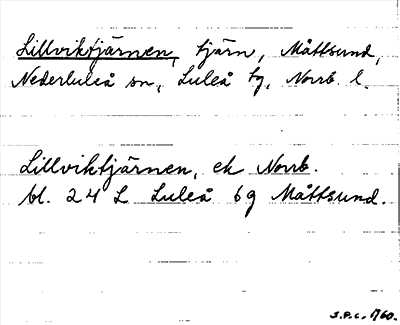 Lillviktjärnen, tjärn, Måttsund,
Nederluleå sn, Luleå tg, Norrb. l.
Lillviktjärnen, ek Norrb.
bl. 24 L Luleå 6g Måttsund.
S.P.C. 1760.